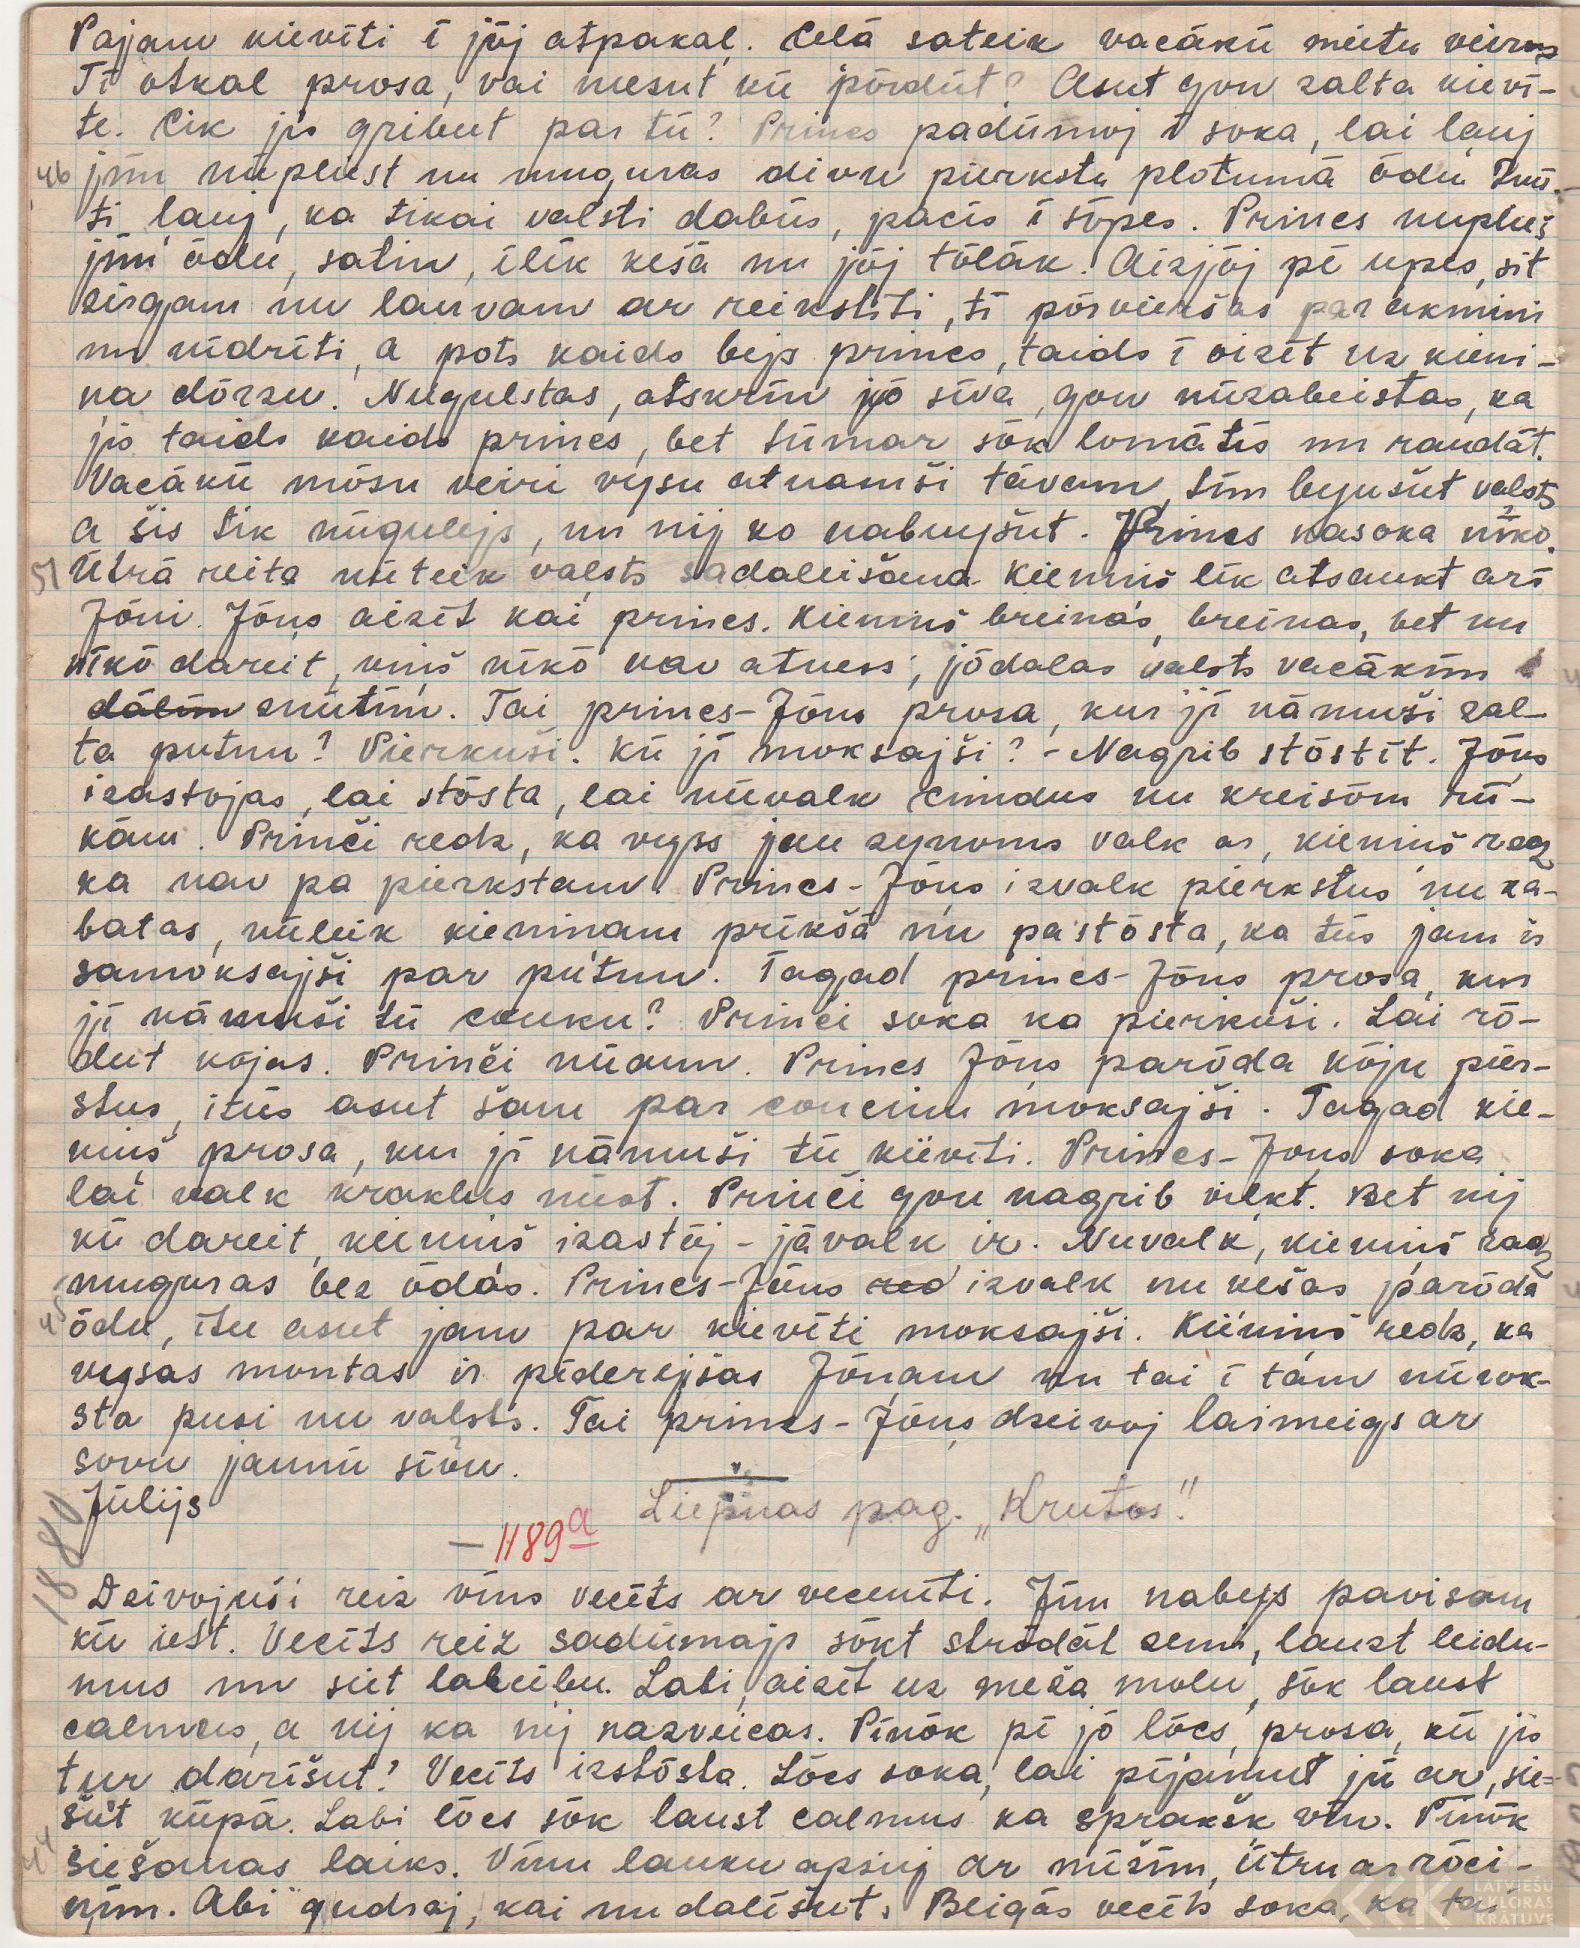 Pajam kievīti i jōj atpakaļ. Celā sateik vacākū meitu veirus
Tī otkal prosa, vai nesut kū pōrdūt? Asut gon zalta kievī-
te. Cik jis gribut par tū? Princs padūmoj i soka, lai ļauj
46 jim nūplēst nu muguras divu pierkstu plotumā ōdu. Znū-
ti ļauj, ka tikai valsti dabūs, pacīs i sōpes. Princs nuplēš
jim ōdu, satin, ilīk kešā nu jōj tōļāk. Aizjōj pi upes, sit
zirgam nu lauvam ar reiksteiti, ti pōrvieršas par akmini
nu nīdrīti, a pots kaids bejs princs, taids i aizīt uz kieni-
ņa dōrzu. Nugulstas, atskrīn jō sīva, gon nūzabeistas, ka
jis taids kaids princs, bet tūmār sōk lomātīs nu raudāt.
Vacākū mōsu veiri vysu atnamši tāvam, tim byušut valsts
a šis tik nūgulejs, nu nij ko nabuyšut. Princs nasoka nīko.
51 Ūtrā reita nūteik valsts sadaleišana. Kieninš līk atsaukt arī
Jōni. Jōņs aizīt kai princs. Kieninš breinās, breinas, bet nu
nīkō dareit, viņš nīkō nav atness, jōdalas valsts vacākim
dālim znūtim. Tai princs-Jōņs prosa, kur ji nāmuši zal-
ta putnu? Pierkuši. Kū ji moksajši? - Nagrib stōstīt. Jōņs
izastojas, lai stōsta, lai nūvalk cimdus nu kreisōm rū-
kām. Prinči redz, ka vyss jau zynoms valk ar, kieninš redz
ka nav pa pierkstam. Princs-Jōņs izvalk pierkstus nu ka-
batas, nūleik kieniņam prīkšā nu pastōsta, ka tūs jam ir
samoksajši par putnu. Tagad princs-Jōņs prosa, kur
ji nāmuši tū couku? Prinči soka ka pierkuši. Lai rō-
dut kojas. Prinči nūaun. Princs Jōņs parōda kōju pier-
stus, itūs asut šam par coucinu moksajši. Tagad kie-
ninš prosa, kur ji nāmuši tū kievīti. Princs-Jōņs soka
lai valk kraklus nūst. Prinči gon nagrib vilkt. Bet nij
kū dareit, kieninš izastōj - jāvalk ir. Nuvalk, kieninš rādz
45 muguras bez ōdas. Princs-Jōņs red izvalk nu kešas parōda
ōdu, itu asut jam par kievīti moksajši. Kieninš redz, ka
vysas montas ir pīderejšas Jōņam nu tai i tām nūrok-
sta pusi nu valsts. Tai princs-Jōņs dzeivoj laimeigs ar
sovu jaunū sīvu.
Jūlijs
Liepnas pag. „Krutos".
1880
– 1189a
Dzivojuši reiz vīns vecīts ar vecenīti. Jim nabejs pavisam
kū iest. Vecīts reiz sadūmajs sōkt strōdāt zemi, lauzt leidu-
mus nu siet labeibu. Labi, aizīt uz meža molu, sōk laust
calmus, a nij ka nij nazveicas. Pīnōk pi jō lōcs, prosa, kū jis
tur darīšut? Vecīts izstōsta. Lōcs soka, lai pījamut jū ar, sie-
šut kūpā. Labi lōcs sōk laust calmus ka sprakšk vīn. Pīnōk
44 siešanas laiks. Vīnu lauku apsiej ar mīžim, ūtru ar rōci-
ņim. Abi gudroj, kai nu dalīšut. Beigās vecīts soka, ka tai
LATVIEŠU
FOLKLORAS
KRĀTUVE